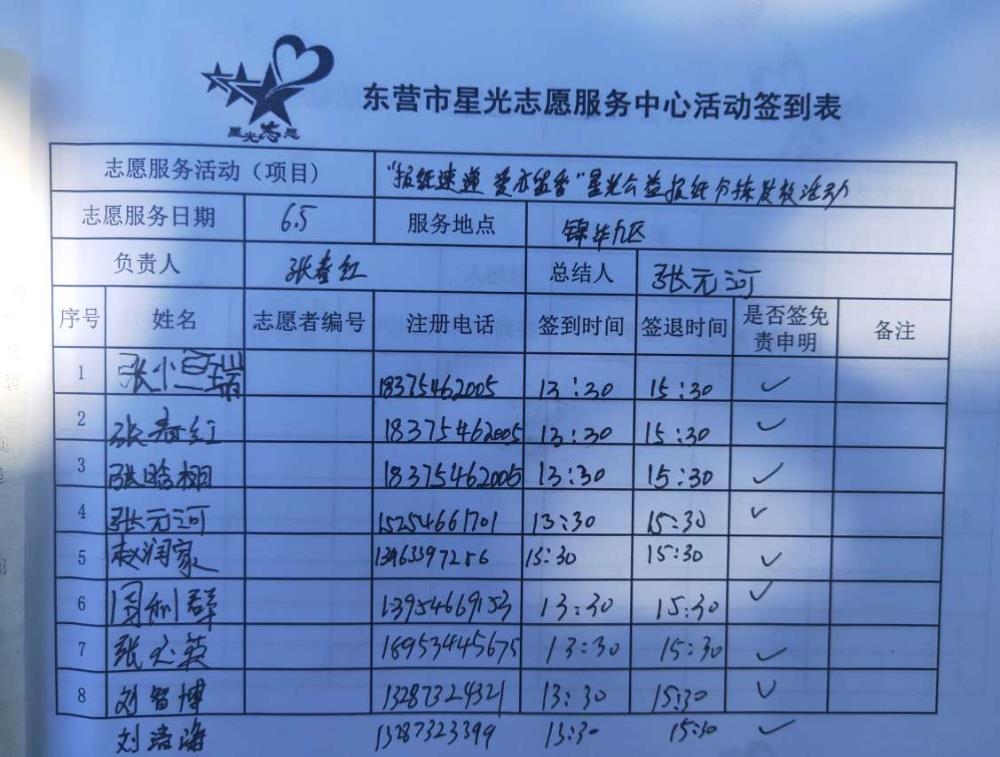 星光志愿
东营市星光志愿服务中心活动签到表
志愿服务活动（项目） "报纸速递 爱心留香"星光公益报纸分拣发放活动
志愿服务日期 6.5 服务地点 锦华九区
负责人 张春红 总结人 张元河
序号 姓名 志愿者编号 注册电话 签到时间 签退时间 是否签免责申明 备注
1 张小瑞 18375462005 13:30 15:30 ✓
2 张春红 18375462005 13:30 15:30 ✓
3 张晗栩 18375462005 13:30 15:30 ✓
4 张元河 15254661701 13:30 15:30 ✓
5 赵润家 13463397286 15:30 15:30 ✓
6 周利群 13954669153 13:30 15:30 ✓
7 张文英 18953445675 13:30 15:30 ✓
8 刘智博 13287324321 13:30 15:30 ✓
刘洁海 13287323399 13:30 15:30 ✓